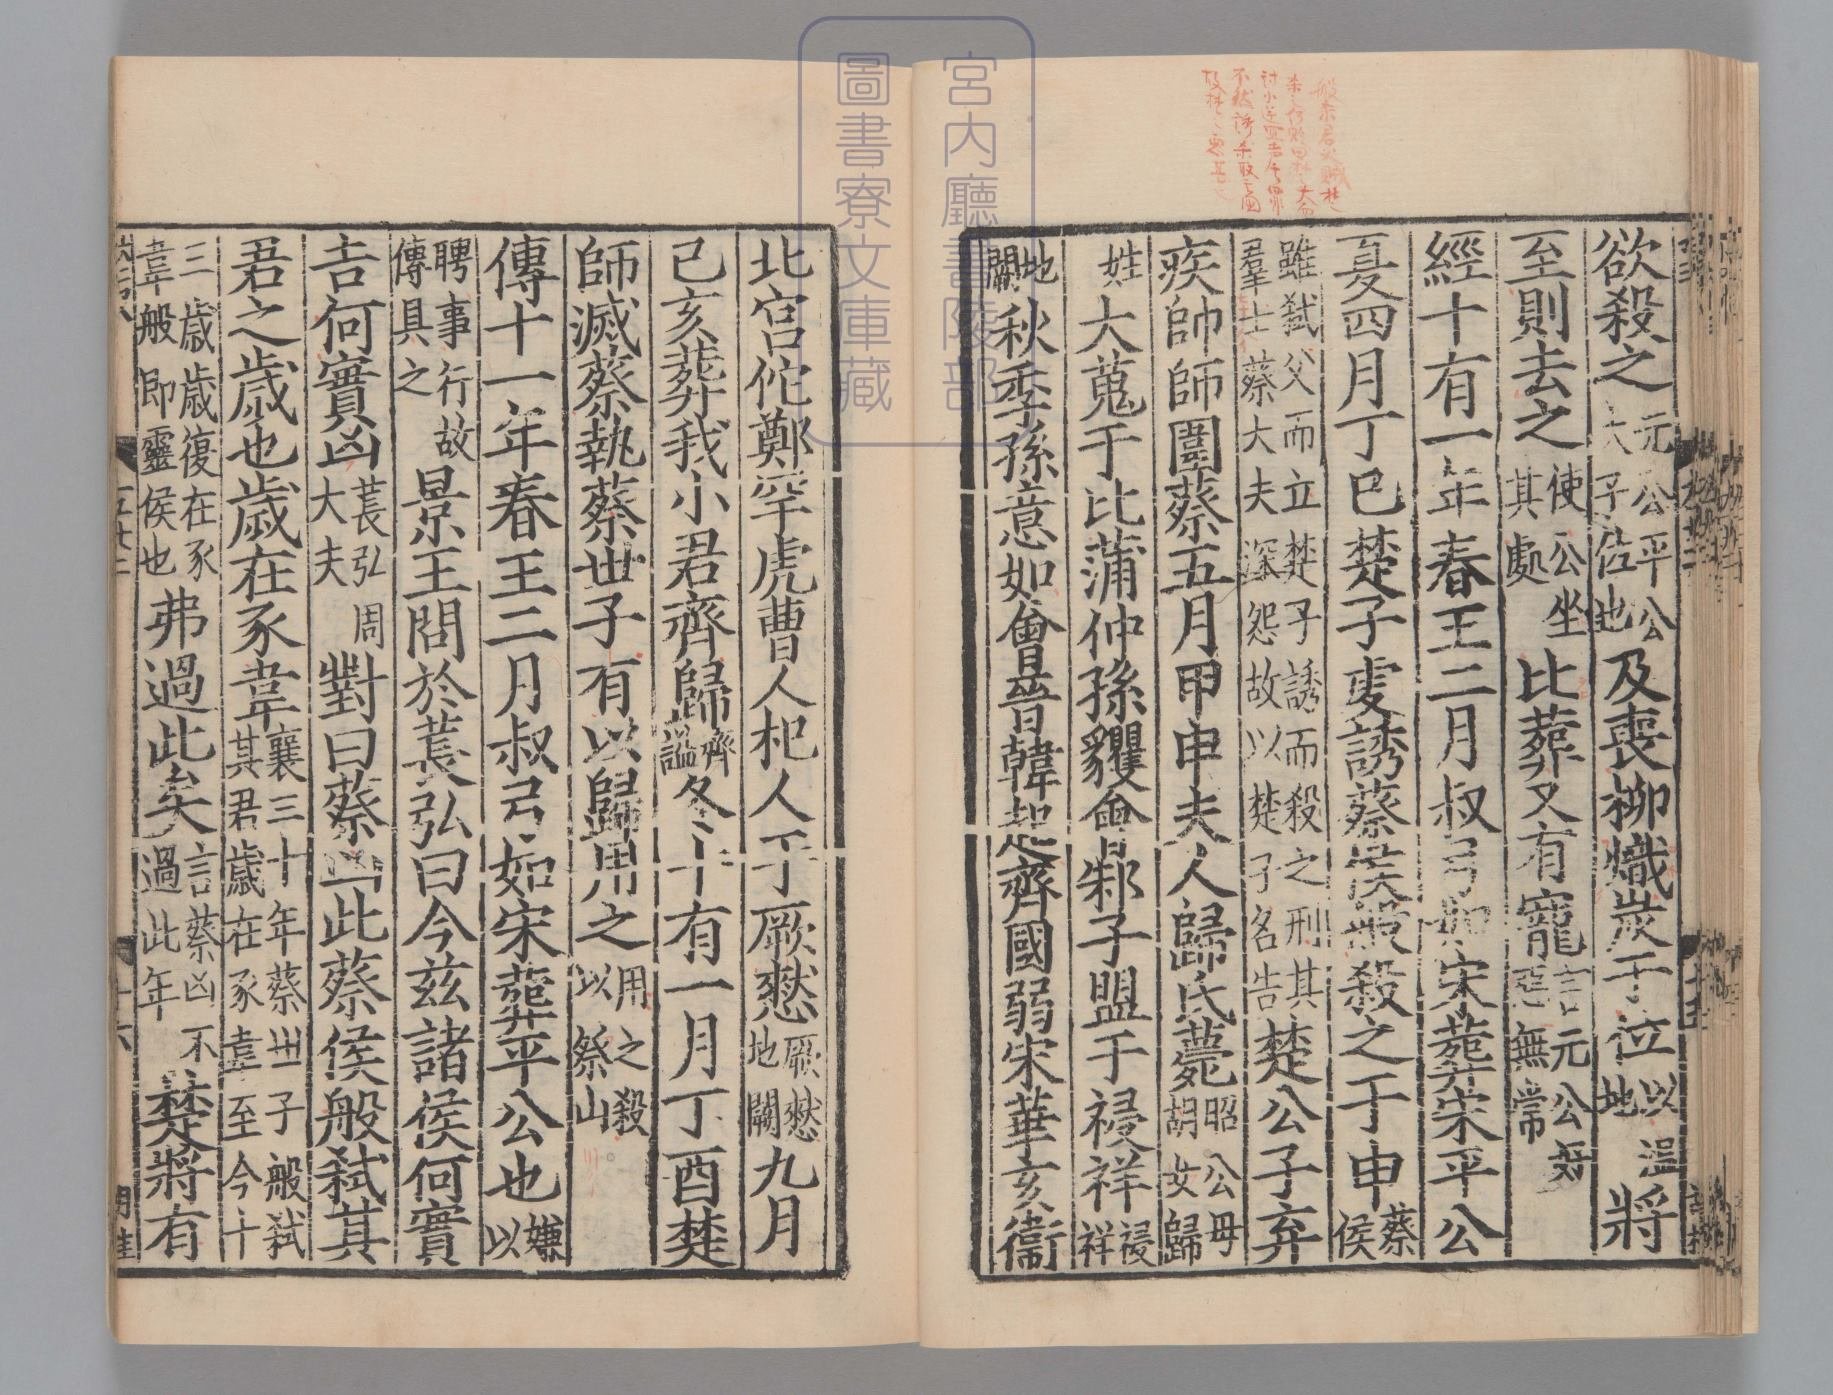 宮內廳書陵部
圖書寮文庫藏
欲殺之元公平公大子佐也及喪柳熾炭于位以溫地將
至則去之使公坐其處比葬又有寵言元公好惡無常
經十有一年春王二月叔弓如宋葬宋平公
夏四月丁巳楚子虔誘蔡侯般殺之于申蔡侯
雖弒父而立楚子誘而殺之刑其羣士蔡大夫深怨故以楚子名告楚公子弃
疾帥師圍蔡五月甲申夫人歸氏薨昭公母胡女歸
姓大蒐于比蒲仲孫貜會邾子盟于祲祥祲祥
地闕秋季孫意如會晉韓起齊國弱宋華亥衞
北宮佗鄭罕虎曹人杞人于厥憖厥憖地闕九月
己亥葬我小君齊歸齊謚冬十有一月丁酉楚
師滅蔡執蔡世子有以歸用之用之殺以祭山
傳十一年春王二月叔弓如宋葬平公也嫌以
聘事行故傳具之景王問於萇弘曰今茲諸侯何實
吉何實凶萇弘周大夫對曰蔡凶此蔡侯般弒其
君之歲也歲在豕韋襄三十年蔡世子般弒其君歲在豕韋至今十
三歲歲復在豕韋般即靈侯也弗過此矣言蔡凶不過此年楚將有